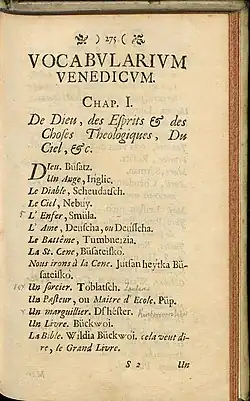 ) 275 (
VOCABVLARIVM
VENEDICVM.
CHAP. I.
De Dieu, des Eſprits & des
Choſes Theologiques, Du
Ciel, &c.
Dieu. Büsatz.
Un Ange, Inglic.
Le Diable, Scheudatſch.
Le Ciel, Nebuy.
5 L' Enfer, Smúla.
L' Ame, Deuſcha, ou Deuſſcha.
Le Batême, Tumbneizia.
La St. Cene, Büsateisko.
Nous irons à la Cene. Jutſan heytka Bü-
sateisko.
Un ſorcier. Toblatſch.
Un Paſteur, ou Maitre d' Ecole. Püp.
Un marguillier. Dſheſter.
Un Livre. Bückwoi.
La Bible. Wildia Bückwoi. cela veut di-
re, le Grand Livre.
S 2 Un